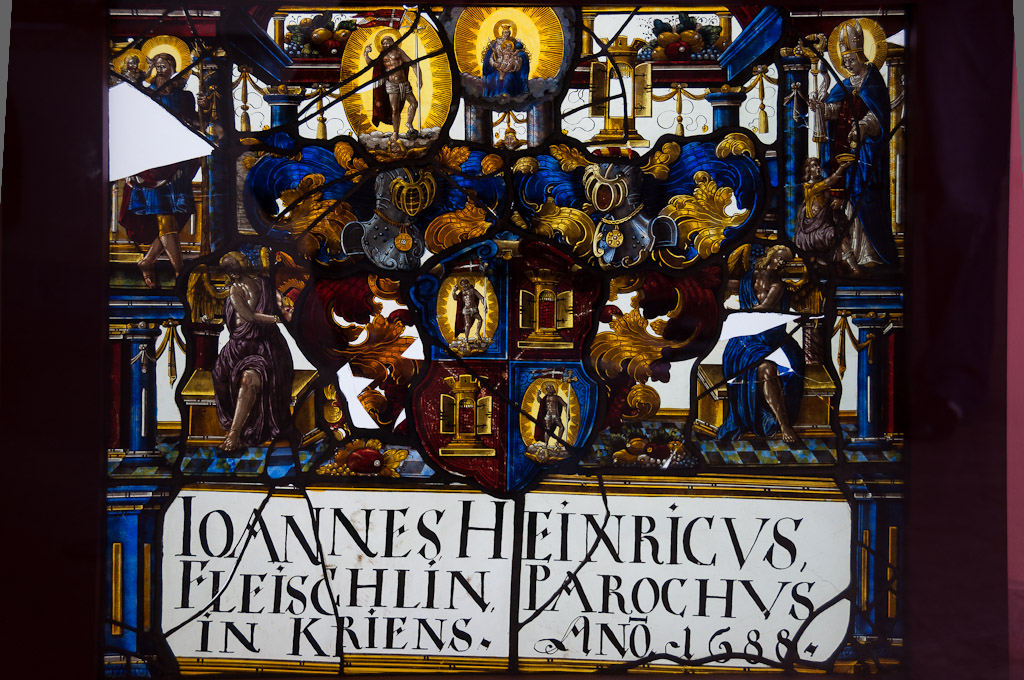 IOANNES HEINRICVS,
FLEISCHLIN, PAROCHVS
IN KRIENS. ANÕ. 1688.